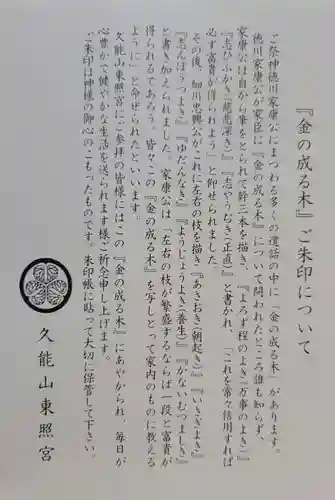 『金の成る木』ご朱印について
ご祭神徳川家康公にまつわる多くの遺話の中に「金の成る木」があります。
徳川家康公が家臣に『金の成る木』について問われたところ誰も知らず、
家康公は自から筆をとられて幹三本を描き、『よろず程のよき（万事のよき）』
『志ひふかき（慈悲深き）』『志やうぢき（正直）』と書かれ、「これを常々信用すれば
必ず富貴が得られよう」と仰せられました。
その後、細川忠興公がこれに左右の枝を描き『あさおき（朝起き）』『いさぎよき』
『志んぼうつよき』『ゆだんなき』『ようじょうよき（養生）』『かないむつまじき』
と書き加えられました。家康公は「左右の枝が繁盛するならば一段と富貴が
得られるであろう。皆々この『金の成る木』を写しとって家内のものに教える
ように」と命ぜられたといいます。
久能山東照宮にご参拝の皆様にはこの『金の成る木』にあやかられ、毎日が
心豊かで健やかな生活を送られます様ご祈念申し上げます。
ご朱印は神様の御心のこもったものです。朱印帳に貼って大切に保管して下さい。
久能山東照宮